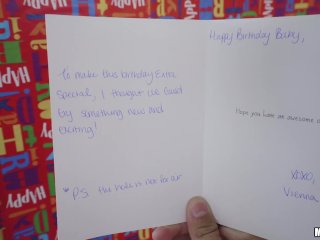 Happy Birthday Baby,
To make this birthday Extra
special, I thought we could
try something new and
exciting!
Hope you have an awesome
*P.S. the is not for ur
XOXO,
Vienna
HAPPY
HAPPY
HAPPY